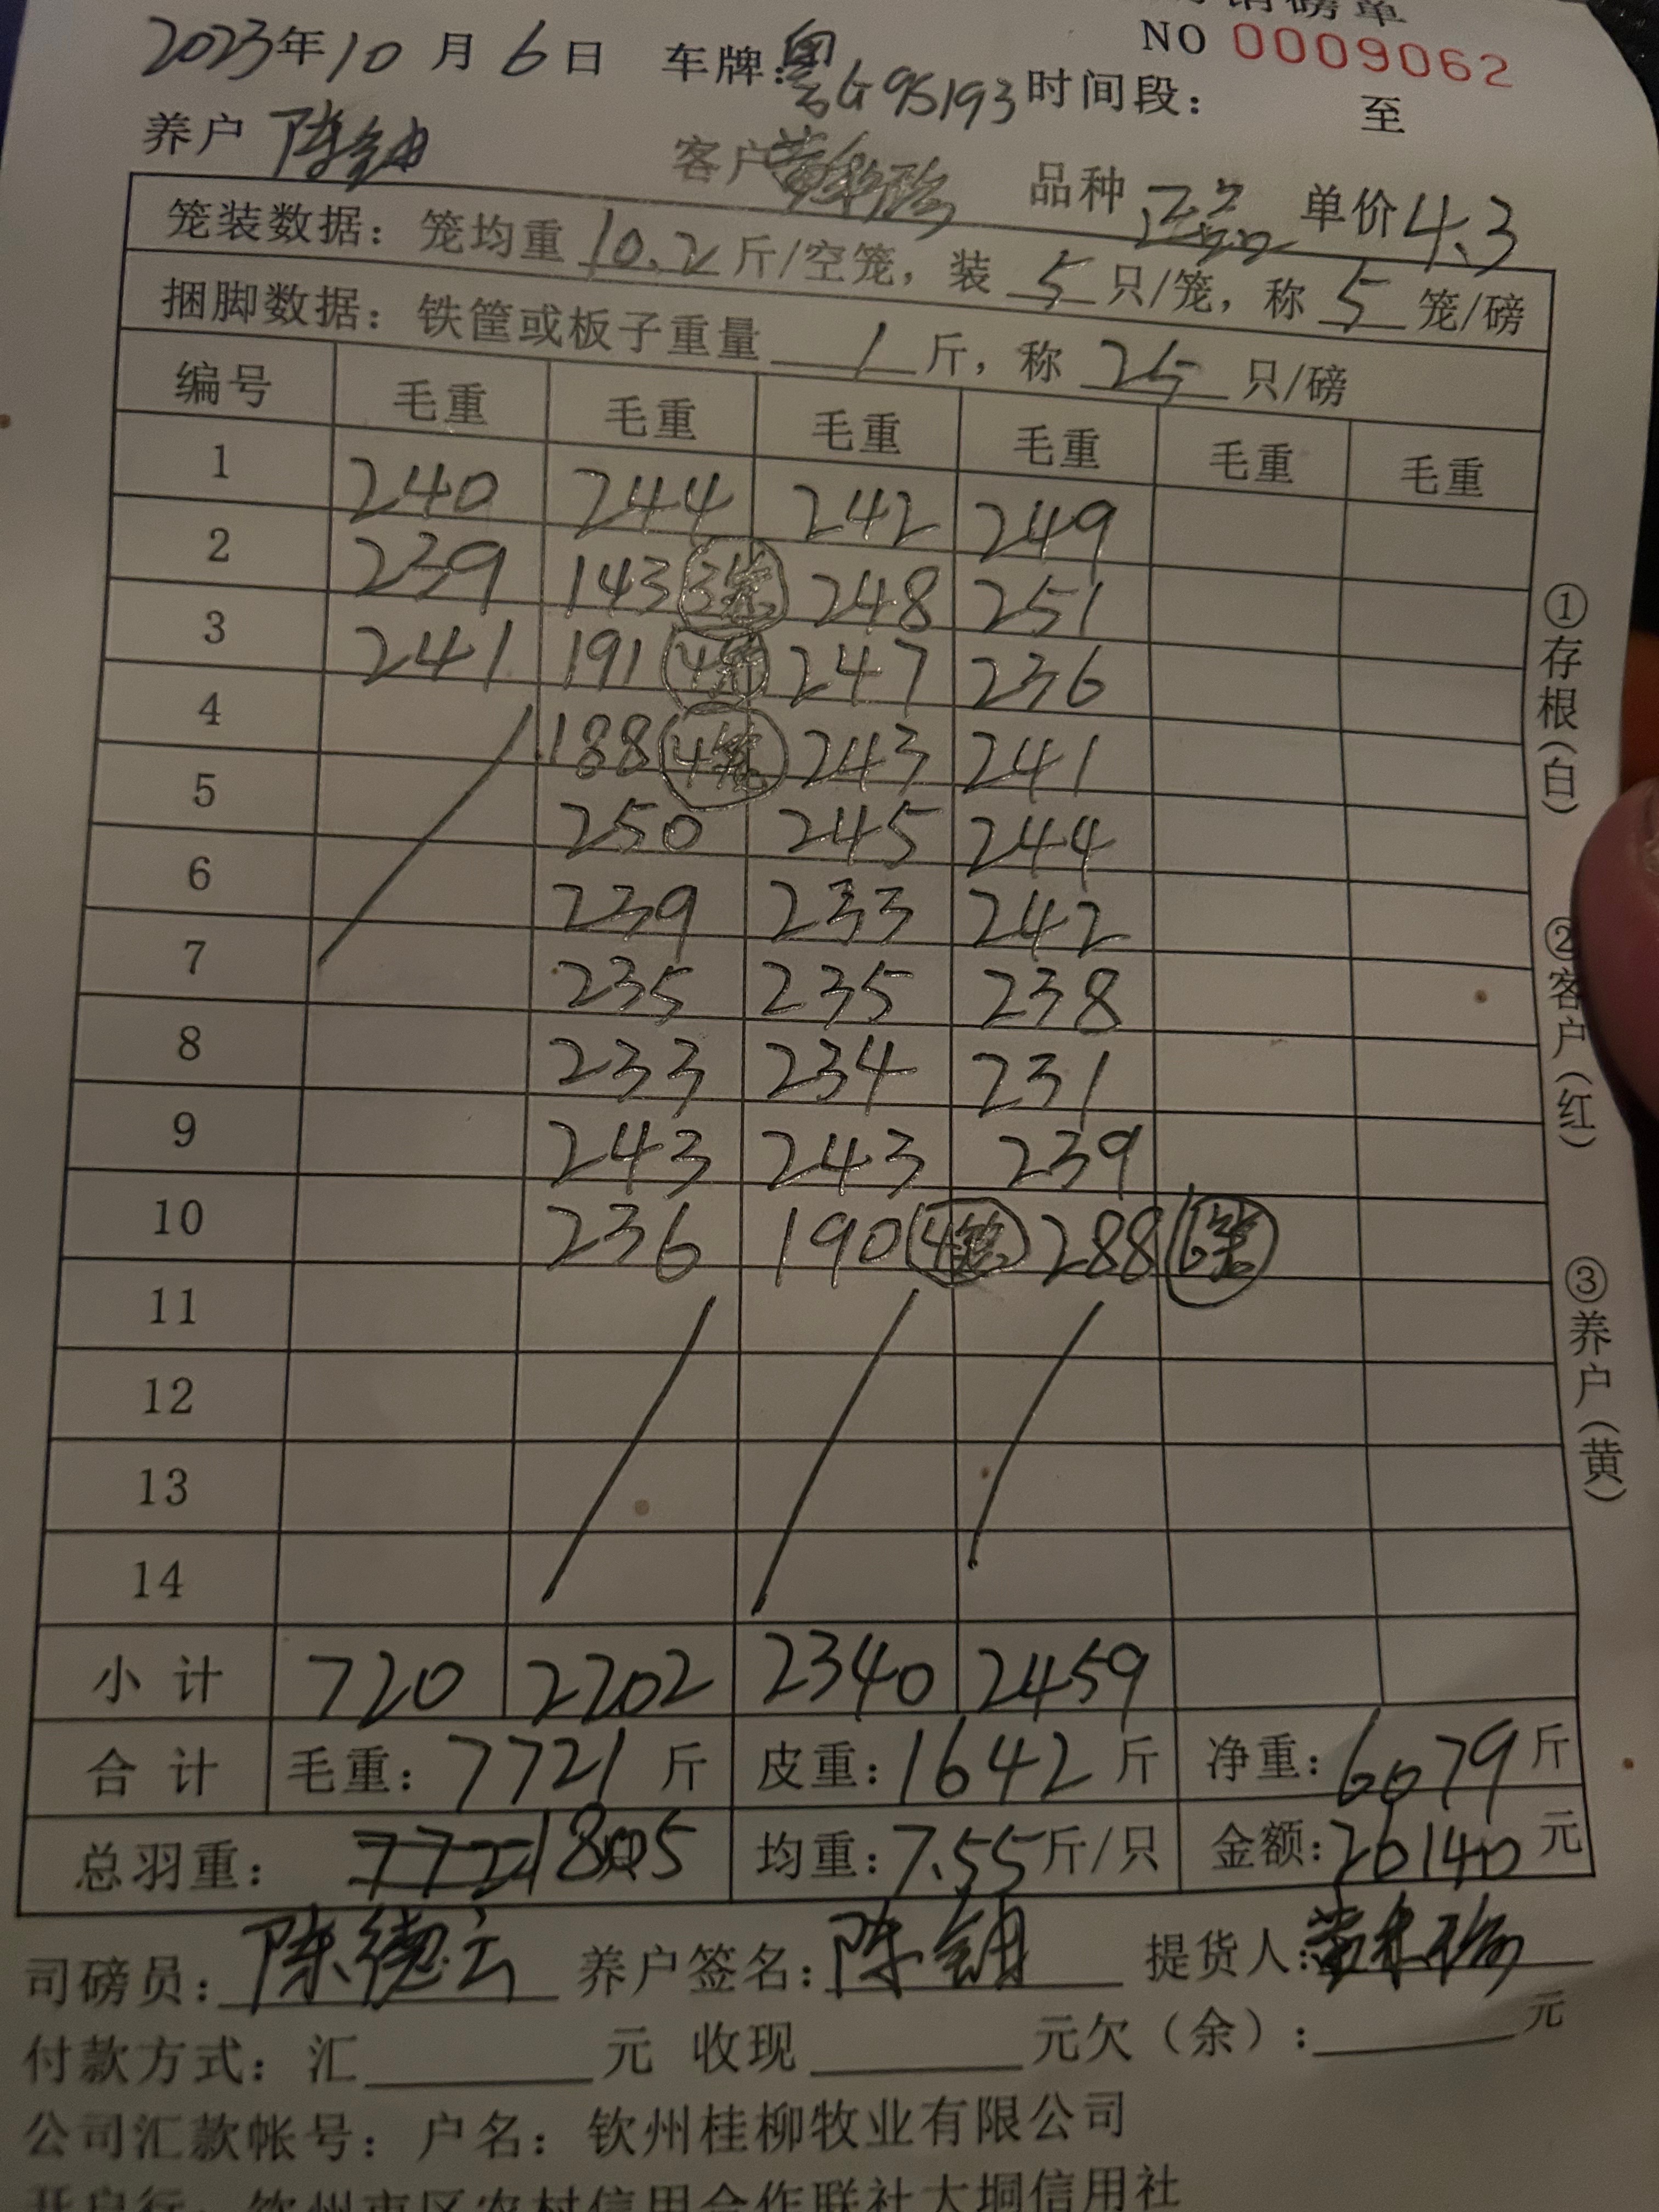 销磅单
NO 0009062
2023年10月6日 车牌:粤G95193 时间段: 至
养户 陈 客户 黄 品种 正品 单价4.3
笼装数据: 笼均重10.2斤/空笼, 装5只/笼, 称5笼/磅
捆脚数据: 铁筐或板子重量1斤, 称25只/磅
编号 毛重 毛重 毛重 毛重 毛重 毛重
1 240 244 242 249
2 239 143 3笼 248 251
3 241 191 4笼 247 236
4 188 4笼 243 241
5 250 245 244
6 239 233 242
7 235 235 238
8 233 234 231
9 243 243 239
10 236 190 4笼 288 6笼
11
12
13
14
小计 720 2202 2340 2459
合计 毛重: 7721斤 皮重: 1642斤 净重: 6079斤
总羽重: 805 均重: 7.55斤/只 金额: 26140元
司磅员: 陈德云 养户签名: 陈 提货人: 黄
付款方式: 汇 元 收现 元欠(余): 元
公司汇款帐号: 户名: 钦州桂柳牧业有限公司
开户行: 钦州市区农村信用合作联社大垌信用社
①存根(白)
②客户(红)
③养户(黄)